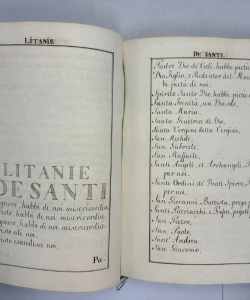 LITANIE
LITANIE
DE SANTI
Signore, habbi di noi misericordia.
Cristo, habbi di noi misericordia.
Signore, habbi di noi misericordia.
Cristo odi noi.
Cristo esaudisci noi.
Pa-
DE SANTI.
Padre Dio de Cieli, habbi pietà
Dio Figlio, e Redentor del Mondo
bi pietà di noi.
Spirito Santo Dio, habbi pietà
Santa Trinità, un Dio solo,
Santa Maria,
Santa Genitrice di Dio,
Santa Vergine delle Vergini,
San Michele,
San Gabriele,
San Raffaele,
Santi Angeli, et Archangeli,
per noi.
Santi Ordini de' Beati Spiriti,
per noi.
San Giovanni Battista, prega per
Santi Patriarchi, e Profeti, pregate
San Pietro,
San Paolo,
Sant' Andrea,
San Giacomo,